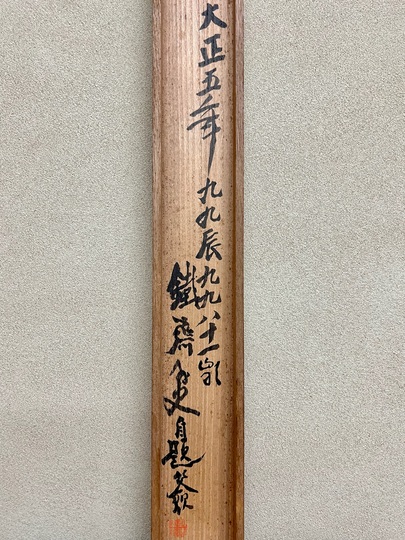 大正五年 九九辰九九 八十一
鐵齋外史自題簽